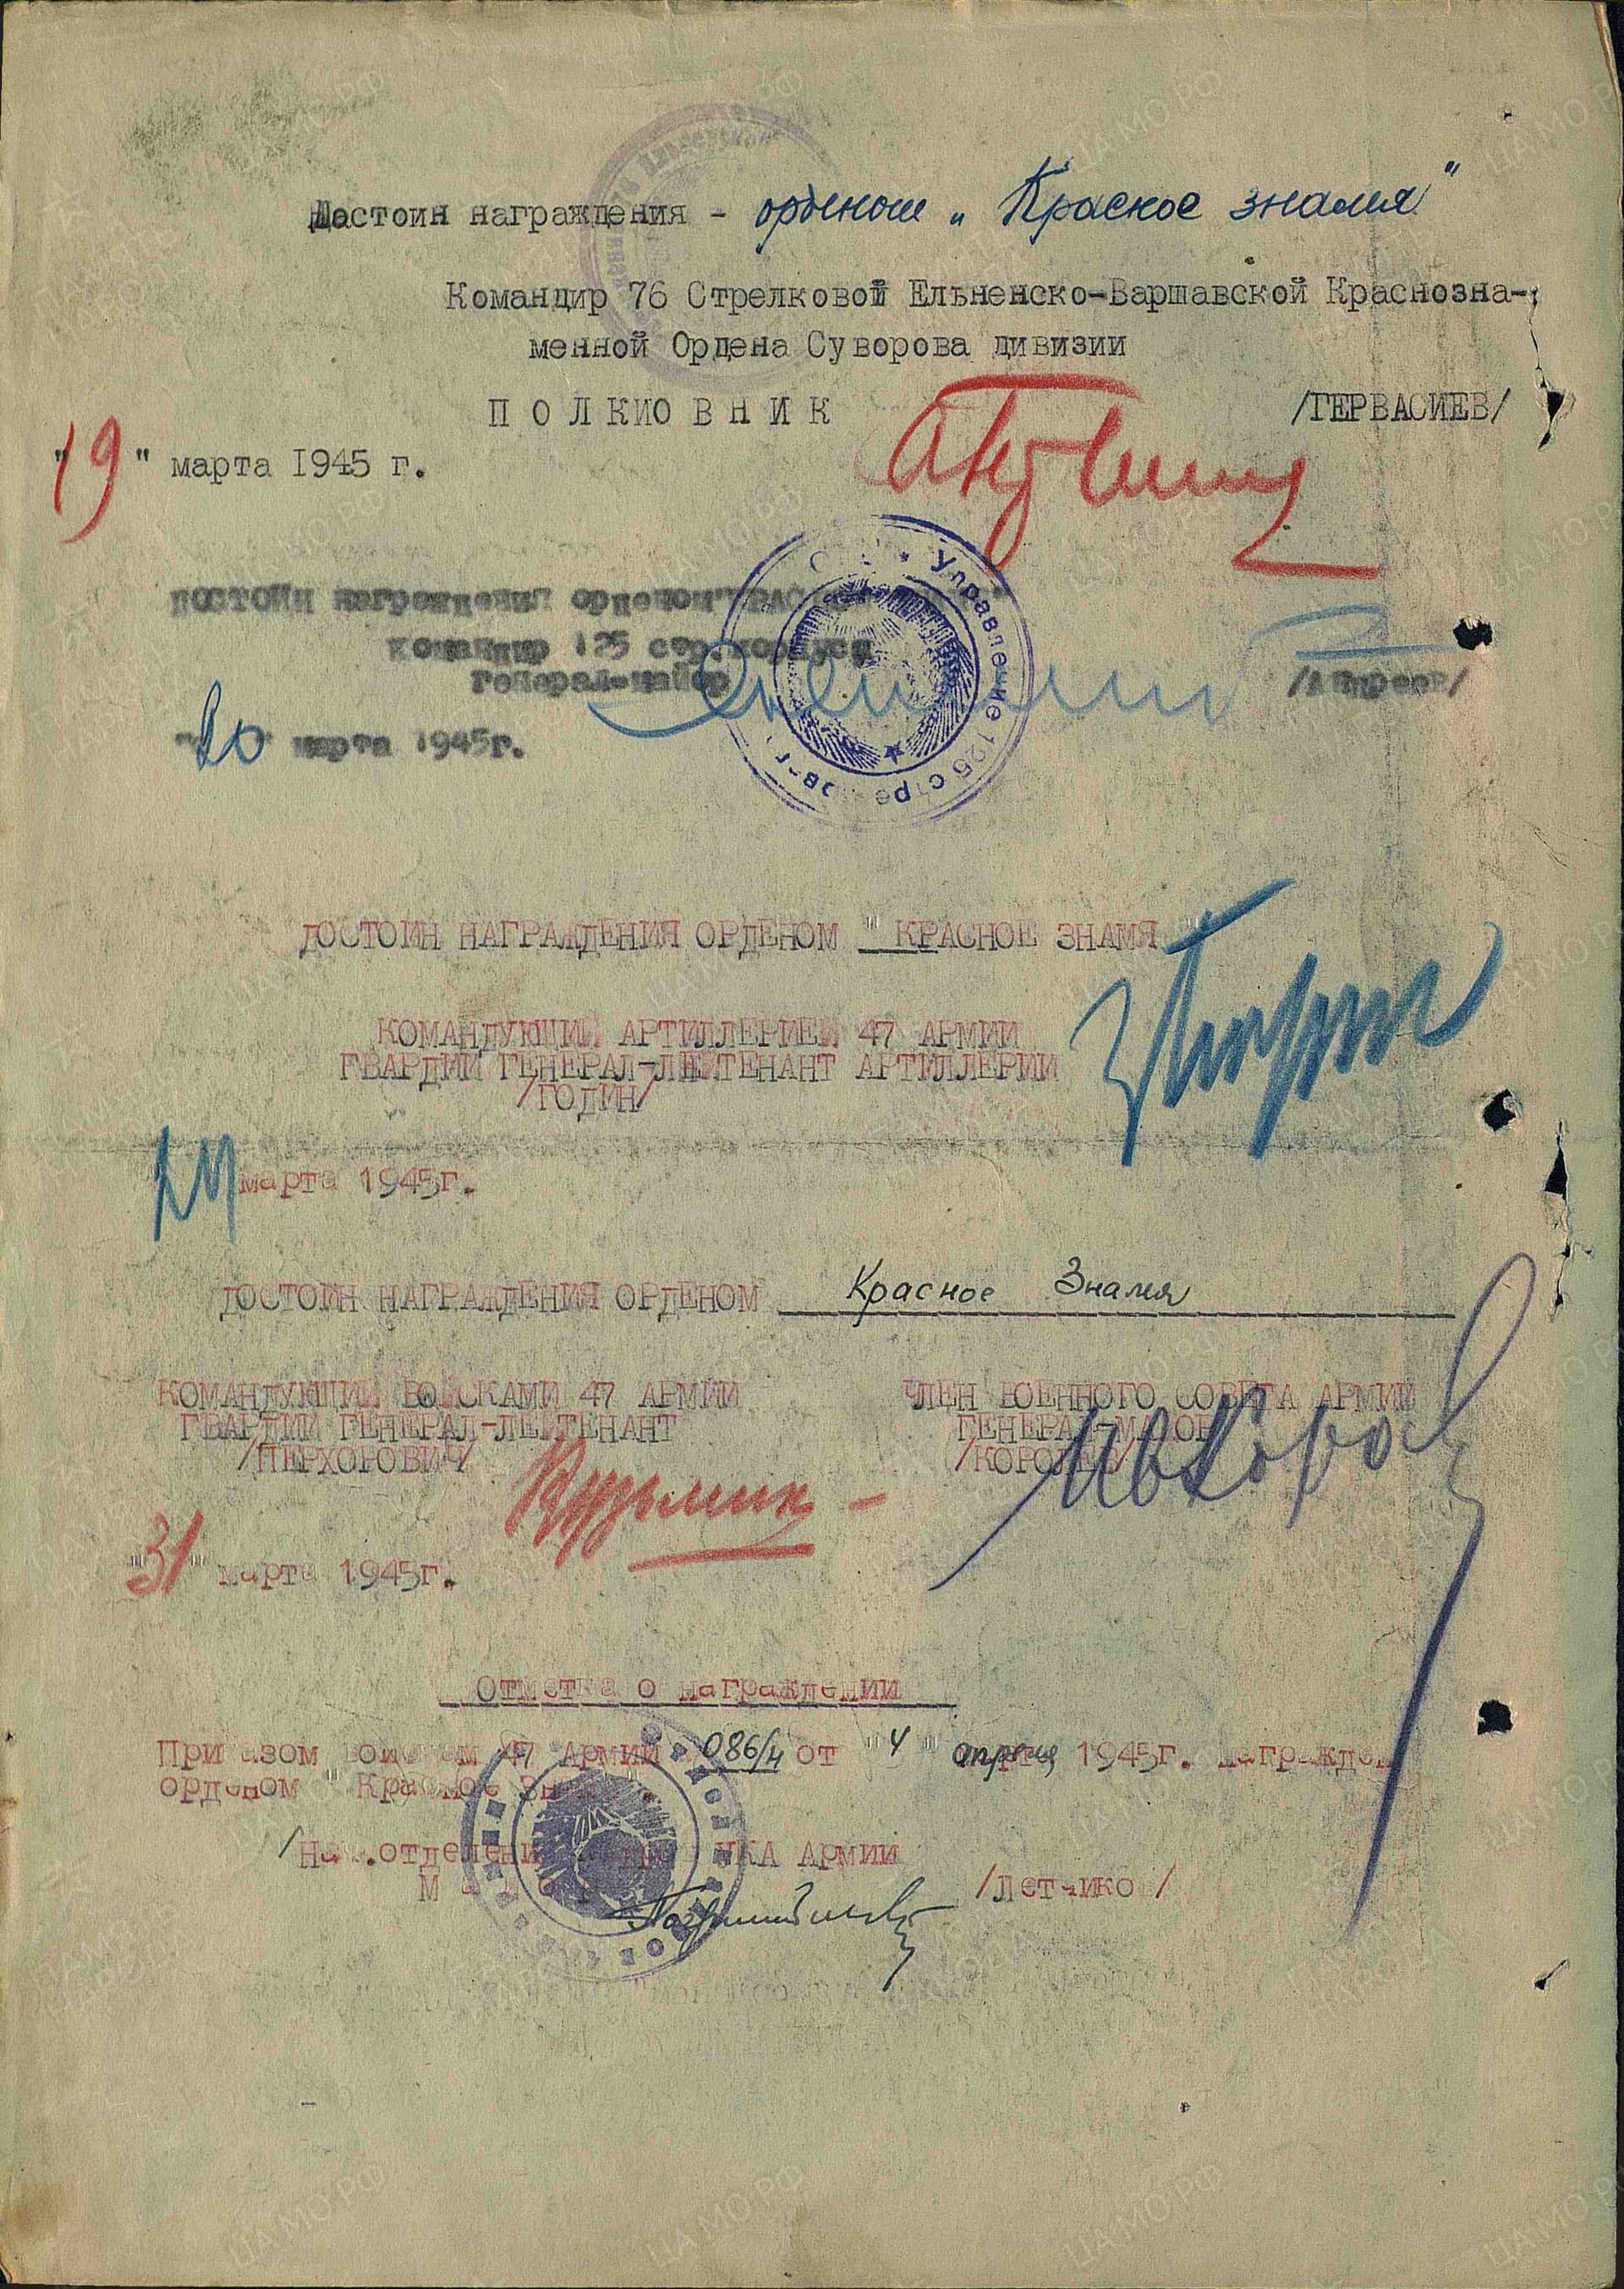 Достоин награждения - орденом „Красное знамя"
Командир 76 Стрелковой Ельненско-Варшавской Краснозна-
менной Ордена Суворова дивизии
ПОЛКИОВНИК /ГЕРВАСИЕВ/
"19" марта 1945 г.
достоин награждения орденом "КРАСНОЕ
Командир 125 стр.корпуса
Генерал-майор /Андреев/
"20" марта 1945г.
Управление 125 стре
ДОСТОИН НАГРАЖДЕНИЯ ОРДЕНОМ "КРАСНОЕ ЗНАМЯ"
КОМАНДУЮЩИЙ АРТИЛЛЕРИЕЙ 47 АРМИИ
ГВАРДИИ ГЕНЕРАЛ-ЛЕЙТЕНАНТ АРТИЛЛЕРИИ
/ГОДИН/
марта 1945г.
ДОСТОИН НАГРАЖДЕНИЯ ОРДЕНОМ Красное Знамя
КОМАНДУЮЩИЙ ВОЙСКАМИ 47 АРМИИ
ГВАРДИИ ГЕНЕРАЛ-ЛЕЙТЕНАНТ
/ПЕРХОРОВИЧ/
ЧЛЕН ВОЕННОГО СОВЕТА АРМИИ
ГЕНЕРАЛ-МАЙОР
/КОРОЛЕВ/
"31" марта 1945г.
Отметка о награждении
Приказом войскам 47 Армии 086/н от "4" апреля 1945г. награжден
орденом "Красное Знамя".
/Нач.отделения УКА Армии
/Летчиков/